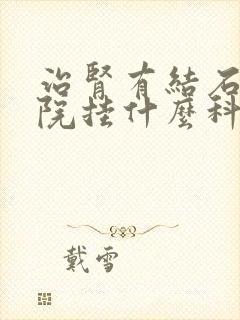 治腎有結石
院挂什麼科
戴雪